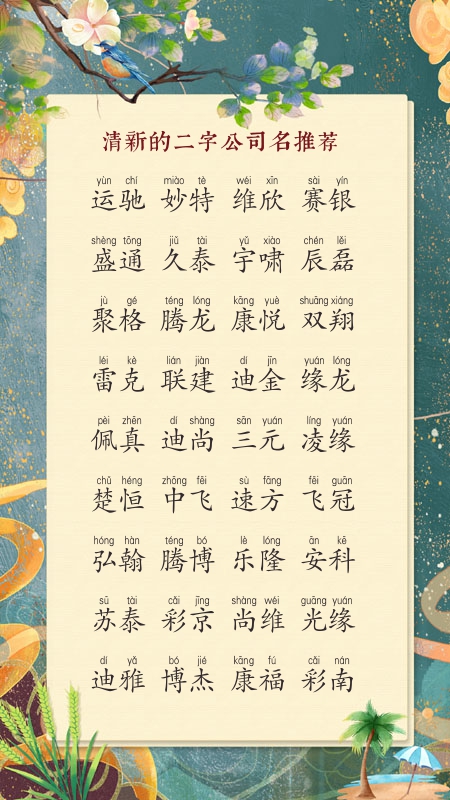 清新的二字公司名推荐
yùn chí miào tè wéi xīn sài yín
运驰 妙特 维欣 赛银
shèng tōng jiǔ tài yǔ xiào chén lěi
盛通 久泰 宇啸 辰磊
jù gé téng lóng kāng yuè shuāng xiáng
聚格 腾龙 康悦 双翔
léi kè lián jiàn dí jīn yuán lóng
雷克 联建 迪金 缘龙
pèi zhēn dí shàng sān yuán líng yuán
佩真 迪尚 三元 凌缘
chǔ héng zhōng fēi sù fāng fēi guān
楚恒 中飞 速方 飞冠
hóng hàn téng bó lè lóng ān kē
弘翰 腾博 乐隆 安科
sū tài cǎi jīng shàng wéi guāng yuán
苏泰 彩京 尚维 光缘
dí yǎ bó jié kāng fú cǎi nán
迪雅 博杰 康福 彩南